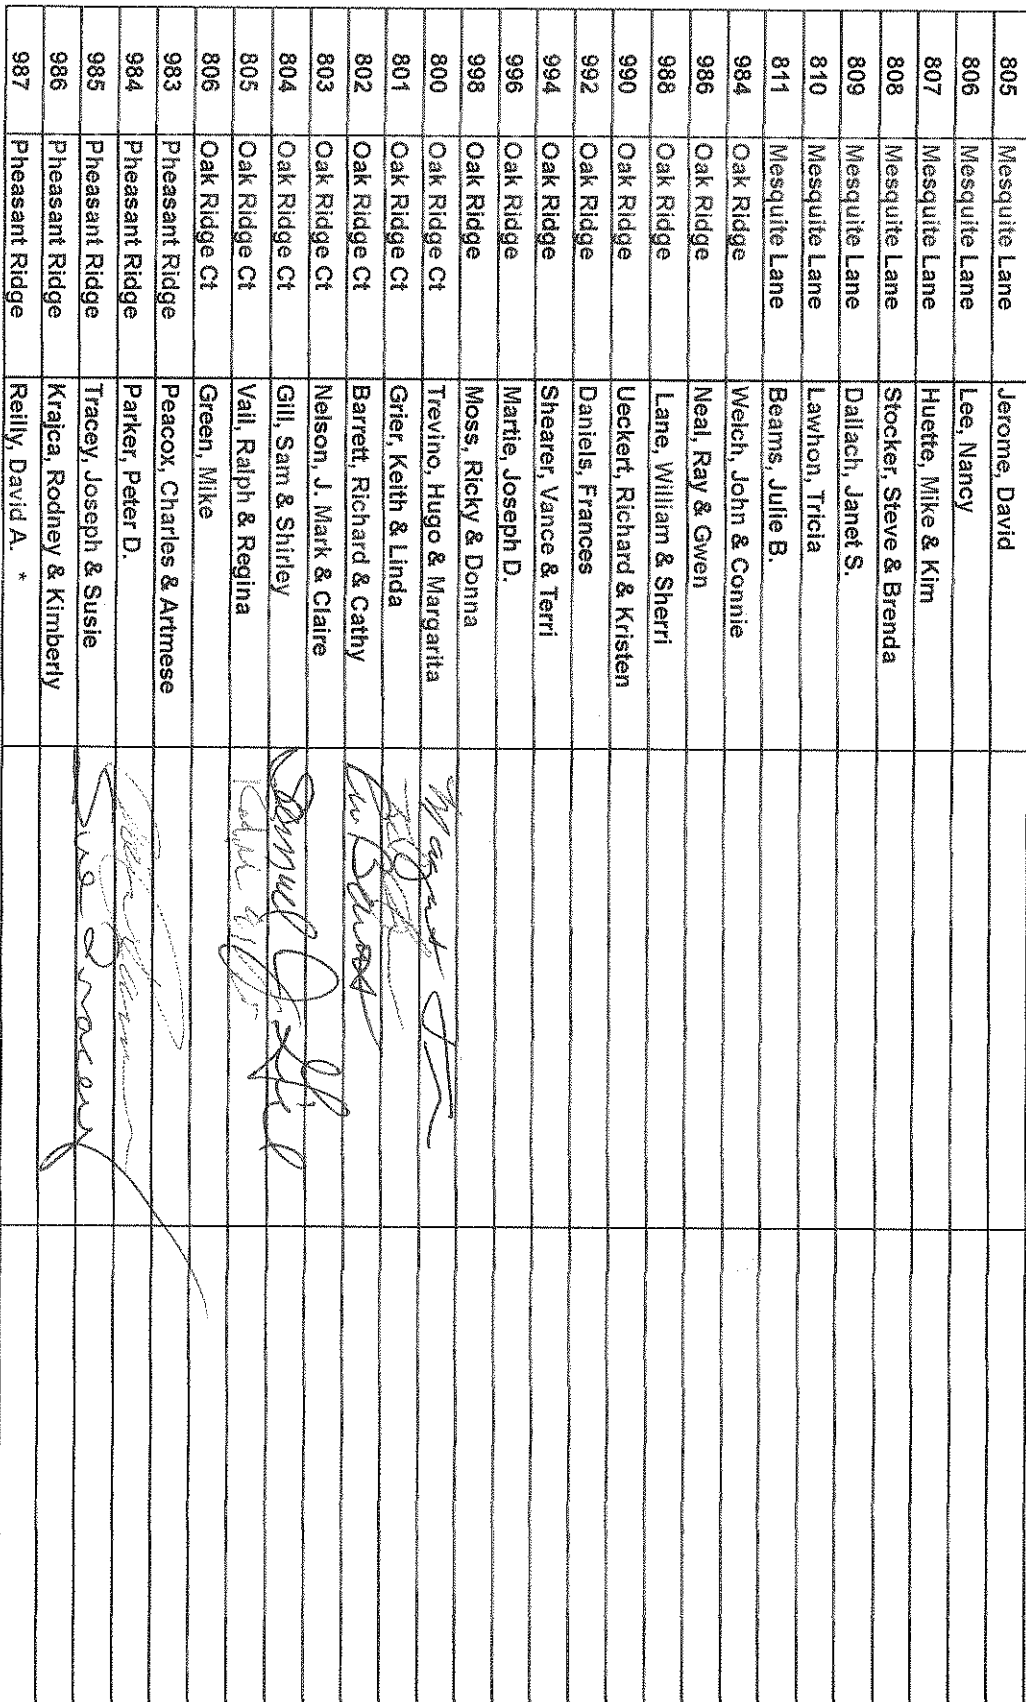 805 Mesquite Lane Jerome, David
806 Mesquite Lane Lee, Nancy
807 Mesquite Lane Huette, Mike & Kim
808 Mesquite Lane Stocker, Steve & Brenda
809 Mesquite Lane Dallach, Janet S.
810 Mesquite Lane Lawhon, Tricia
811 Mesquite Lane Beams, Julie B.
984 Oak Ridge Welch, John & Connie
986 Oak Ridge Neal, Ray & Gwen
988 Oak Ridge Lane, William & Sherri
990 Oak Ridge Ueckert, Richard & Kristen
992 Oak Ridge Daniels, Frances
994 Oak Ridge Shearer, Vance & Terri
996 Oak Ridge Martie, Joseph D.
998 Oak Ridge Moss, Ricky & Donna
800 Oak Ridge Ct Trevino, Hugo & Margarita
801 Oak Ridge Ct Grier, Keith & Linda
802 Oak Ridge Ct Barrett, Richard & Cathy
803 Oak Ridge Ct Nelson, J. Mark & Claire
804 Oak Ridge Ct Gill, Sam & Shirley Samuel Gill
805 Oak Ridge Ct Vail, Ralph & Regina
806 Oak Ridge Ct Green, Mike
983 Pheasant Ridge Peacox, Charles & Artmese
984 Pheasant Ridge Parker, Peter D.
985 Pheasant Ridge Tracey, Joseph & Susie Sue Tracey
986 Pheasant Ridge Krajca, Rodney & Kimberly
987 Pheasant Ridge Reilly, David A. *